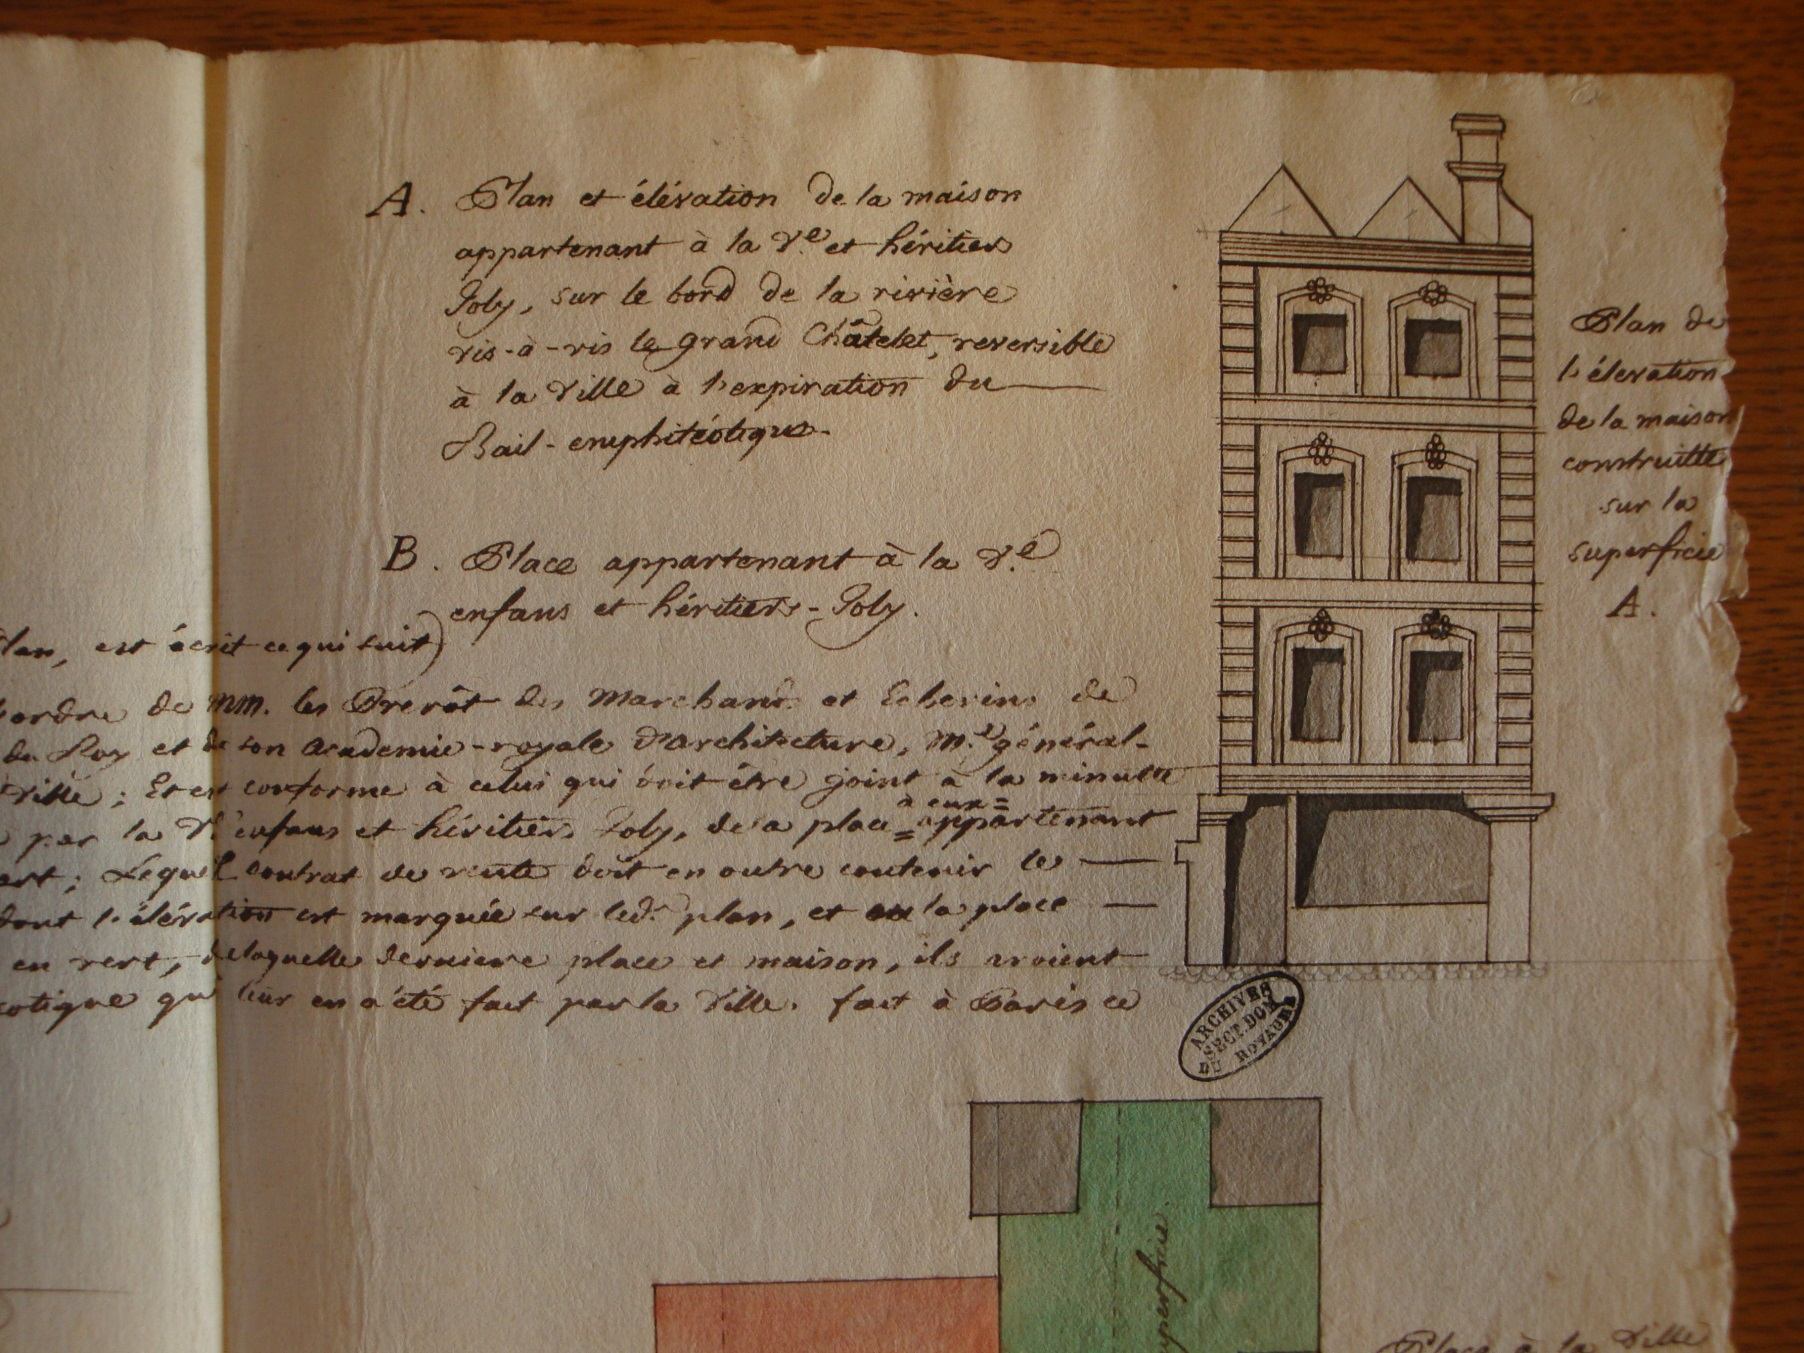 A. Plan et élévation de la maison
appartenant à la Ve. et héritiers
Joly, sur le bord de la rivière
vis-à-vis le grand Châtelet, reversible
à la Ville à l'expiration du
Bail-emphitéotique.
B. Place appartenant à la Ve.
enfans et héritiers-Joly.
Plan de
l'élevation
de la maison
construitte
sur la
superficie
A.
lan, est écrit ce qui suit)
ordre de MM. les Prevôt des Marchands et Echevins de
du Roy et de son academie-royale d'architecture, Me. général-
Ville; Et est conforme à celui qui doit être joint à la minutte
par la Ve. enfans et héritiers Joly, de a place = à eux = appartenant
ert; Lequel contrat de rente doit en outre contenir le
dont l'élévation est marquée sur led. plan, et la place
en vert, de laquelle derniere place et maison, ils avoient
eotique qui leur en a été fait par la Ville. fait à Paris ce
ARCHIVES
SECT. DOM
DU ROYAUME
superficie
Place à la Ville